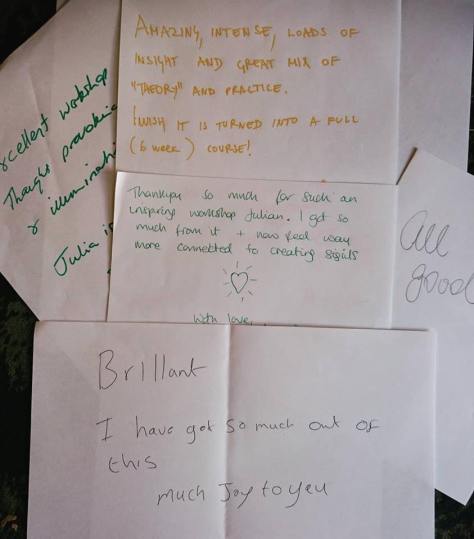 AMAZING, INTENSE, LOADS OF
INSIGHT AND GREAT MIX OF
"THEORY" AND PRACTICE.
I WISH IT IS TURNED INTO A FULL
(6 week) COURSE!
xcellent workshop
Though provokin
& illuminati
Julia is
Thankyou so much for such an
inspiring workshop Julian. I got so
much from it + now feel way
more connected to creating sigils
With love,
All
good
Brillant
I have got so much out of
this
much Joy to you